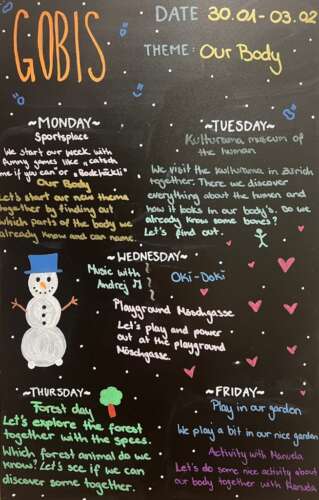 GOBIS
DATE 30.01-03.02
THEME: Our Body
~MONDAY~
Sportsplace
We start our week with
funny games like "catsch
me if you can" or "Bodehöckli"
Our Body
Let's start our new theme
together by finding out
which parts of the body we
already know and can name.
~TUESDAY~
Kulturama museum of
the human
We visit the Kulturama in Zürich
together. There we discover
everything about the human and
how it looks in our body's. Do we
already know some bones?
Let's find out.
~WEDNESDAY~
Music with
Andrej
Oki-Doki
Playground Möschgasse
Let's play and power
out at the playground
Möschgasse.
~THURSDAY~
Forest day
Let's explore the forest
together with the spees.
Which forest animal do we
know? Let's see if we can
discover some together.
~FRIDAY~
Play in our garden
We play a bit in our nice garden
Activity with Manuela
Let's do some nice activity about
our body together with Manuela